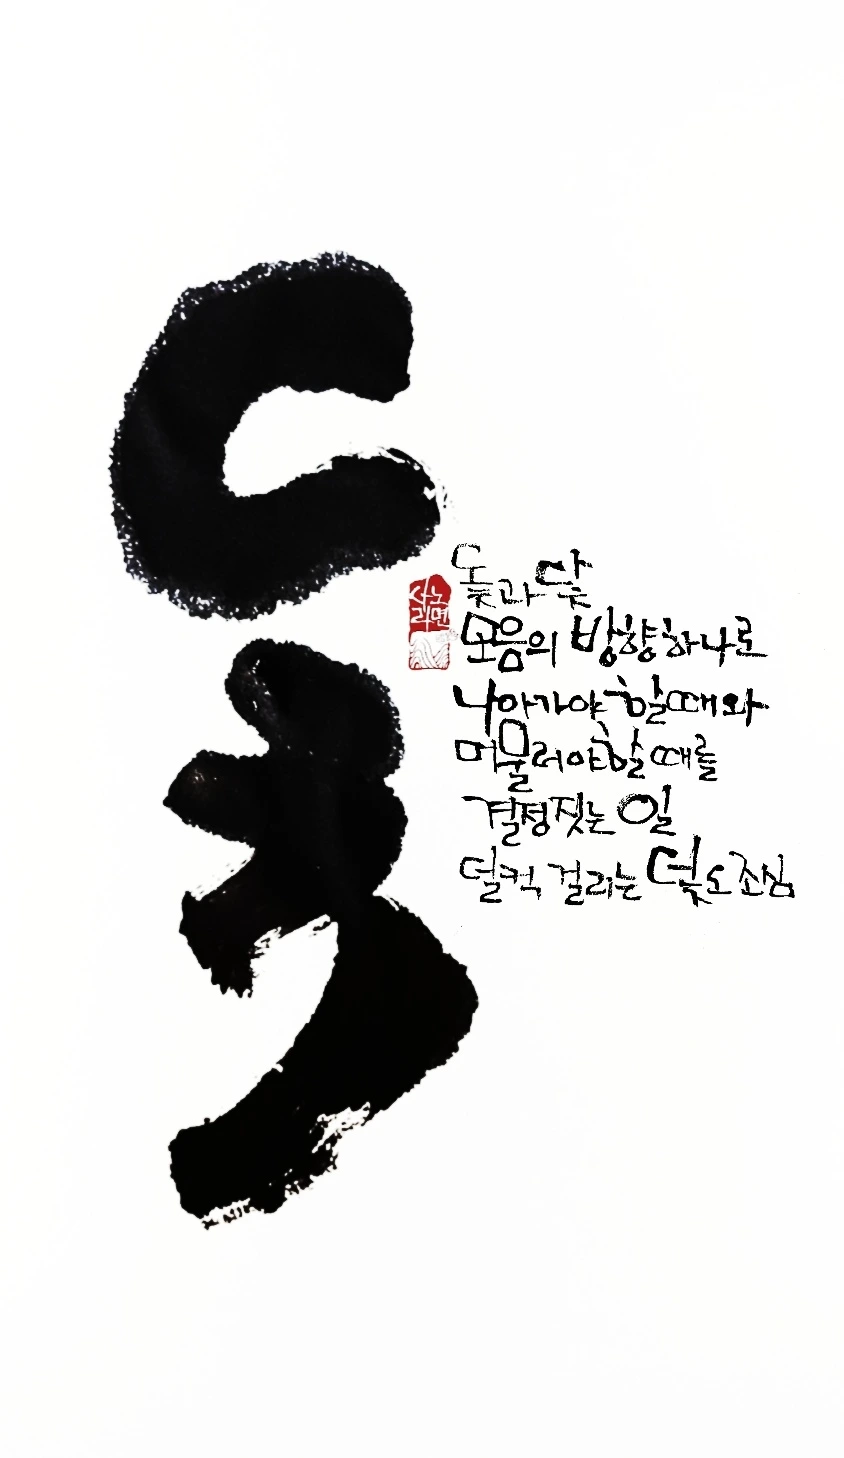 돛과 닻
모음의 방향 하나로
나아가야 할 때와
머물러야 할 때를
결정짓는 일
덜컥 걸리는 덫도 조심
사노
라면